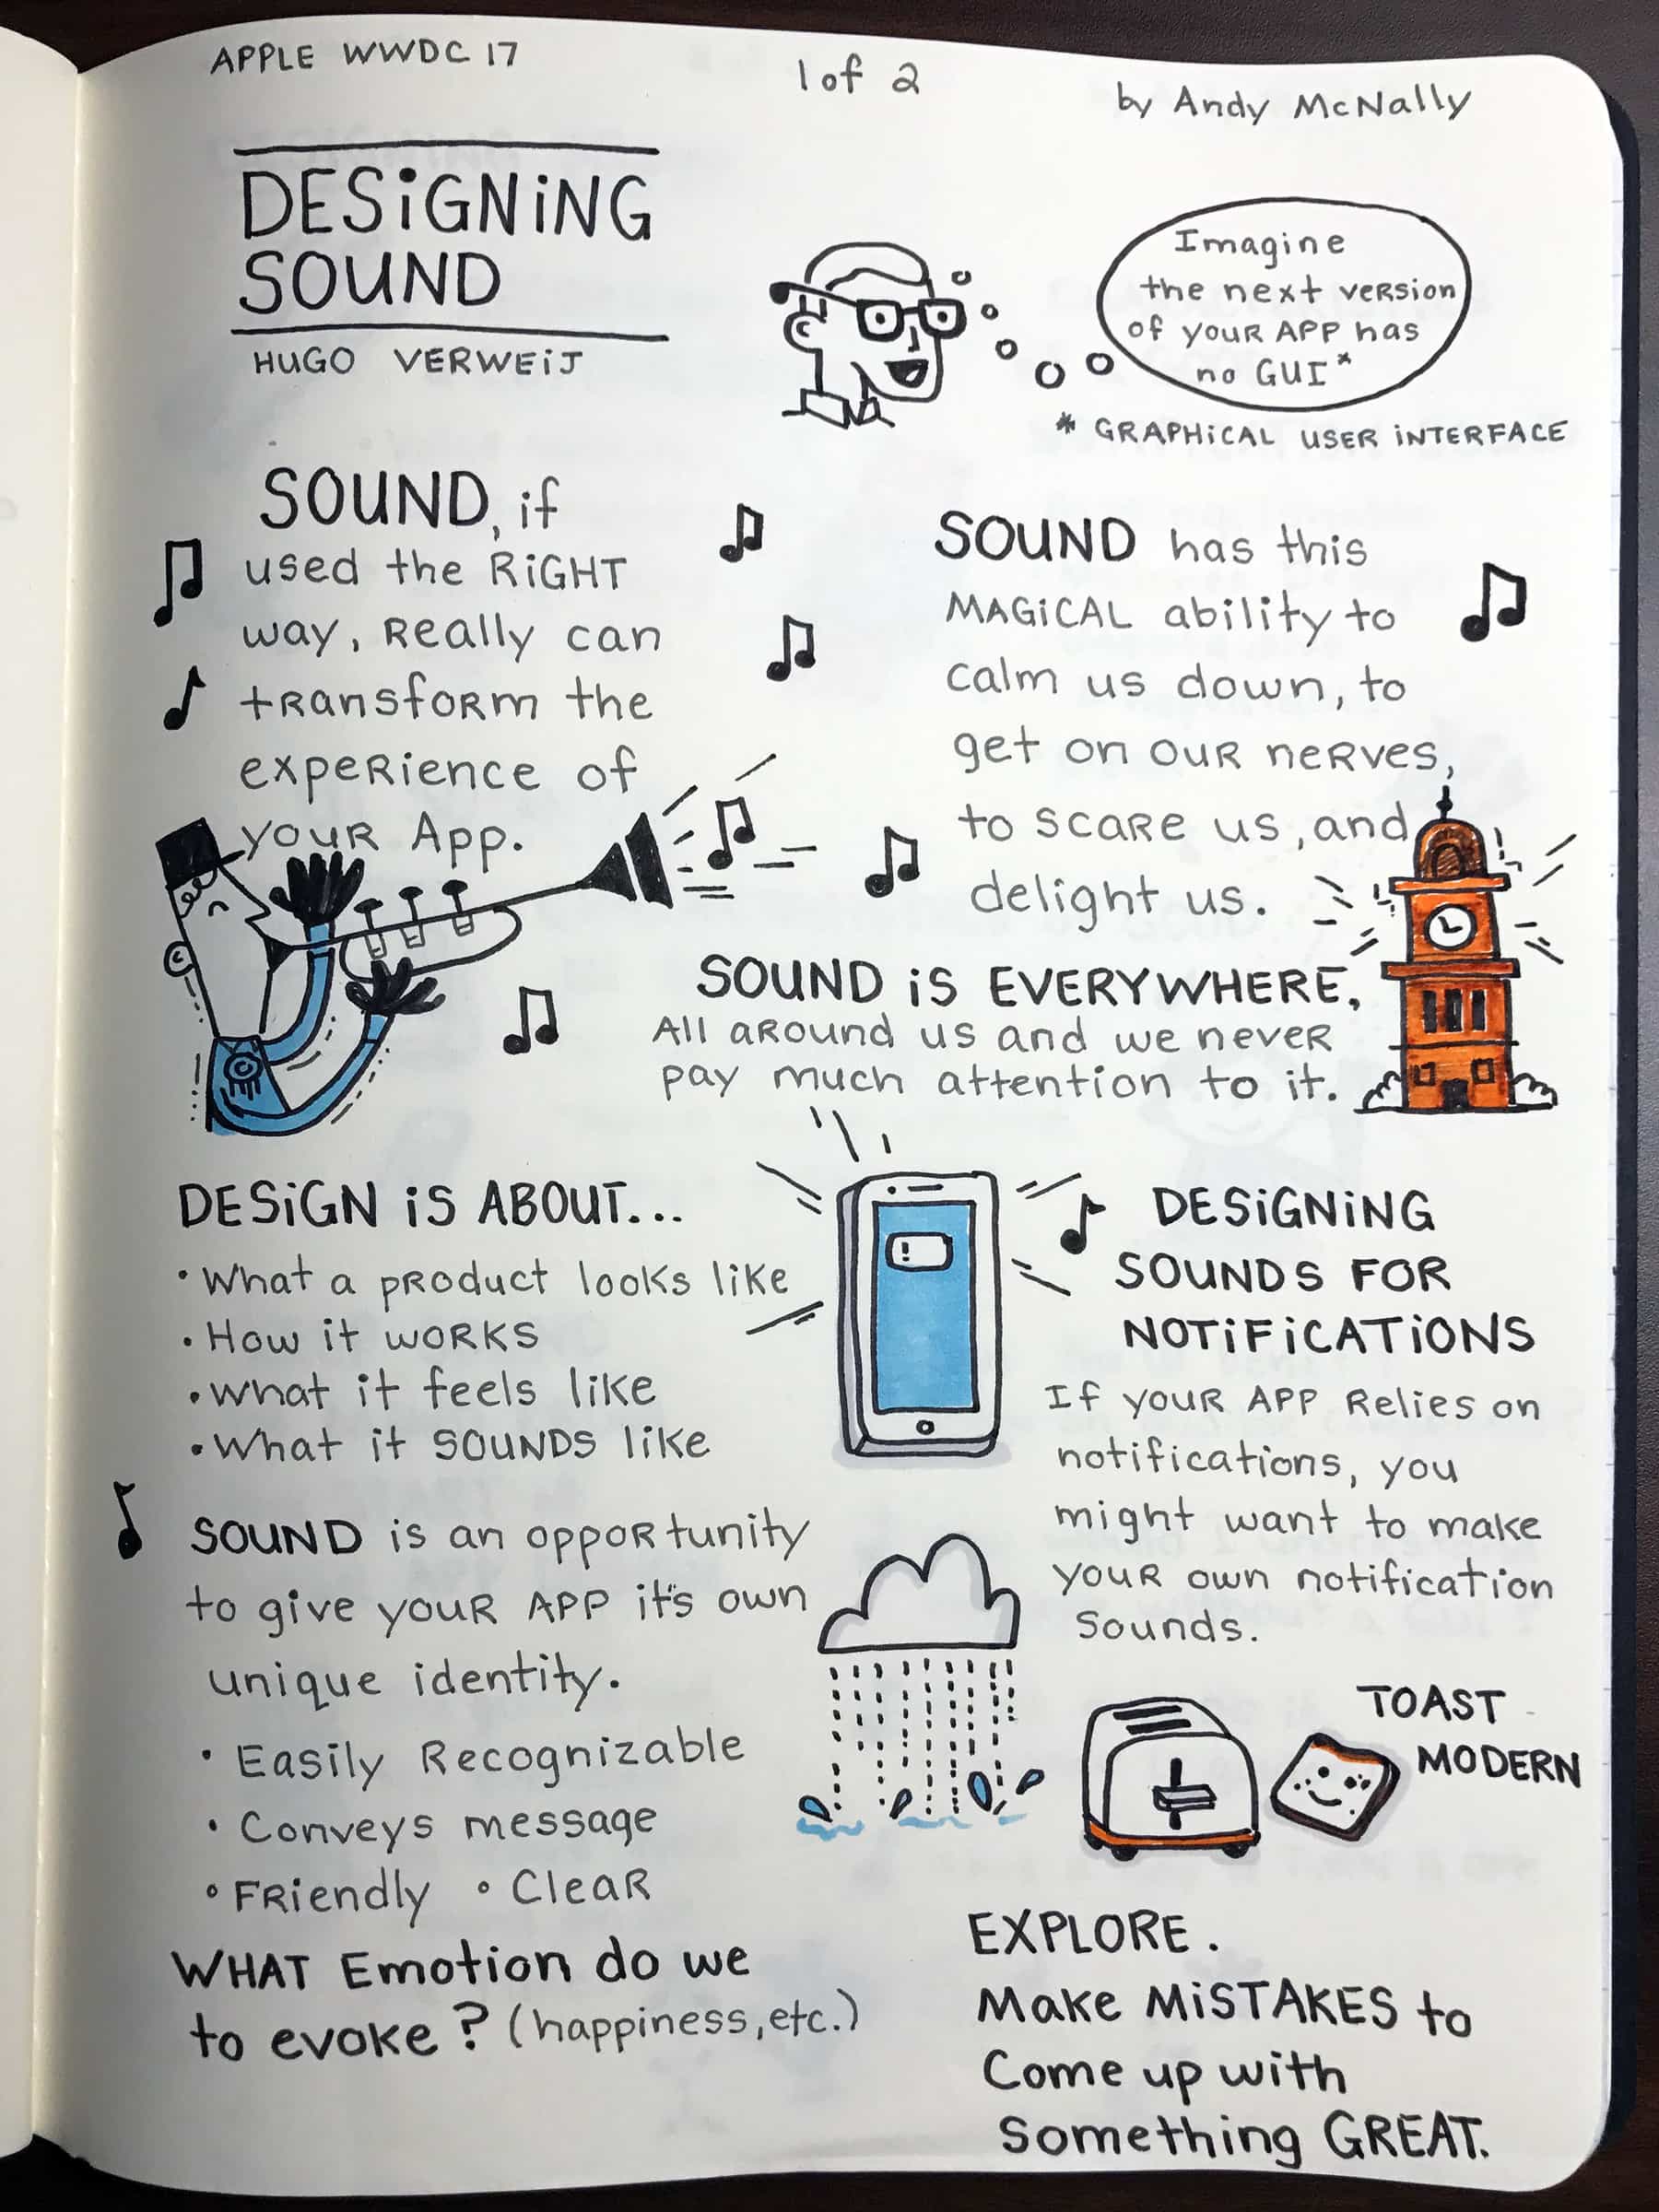 APPLE WWDC 17
1 of 2
by Andy McNally
DESiGNiNG
SOUND
HUGO VERWEiJ
Imagine
the next veRsion
of youR APP has
no GUI*
* GRAPHiCAL USER iNTERFACE
SOUND, if
used the RiGHT
way, Really can
tRansfoRm the
expeRience of
youR App.
SOUND has this
MAGiCAL ability to
calm us down, to
get on ouR neRves,
to scaRe us, and
delight us.
SOUND iS EVERYWHERE,
All aRound us and we neveR
pay much attention to it.
DESiGN iS ABOUT...
• What a pRoduct looks like
• How it WORKS
• What it feels like
• What it SOUNDS like
SOUND is an oppoRtunity
to give youR APP it's own
unique identity.
• Easily Recognizable
• Conveys message
• FRiendly • CleaR
WHAT Emotion do we
to evoke? (happiness, etc.)
!
DESiGNiNG
SOUNDS FOR
NOTiFiCATiONS
If youR APP Relies on
notifications, you
might want to make
youR own notification
Sounds.
TOAST
MODERN
EXPLORE.
Make MiSTAKES to
Come up with
Something GREAT.